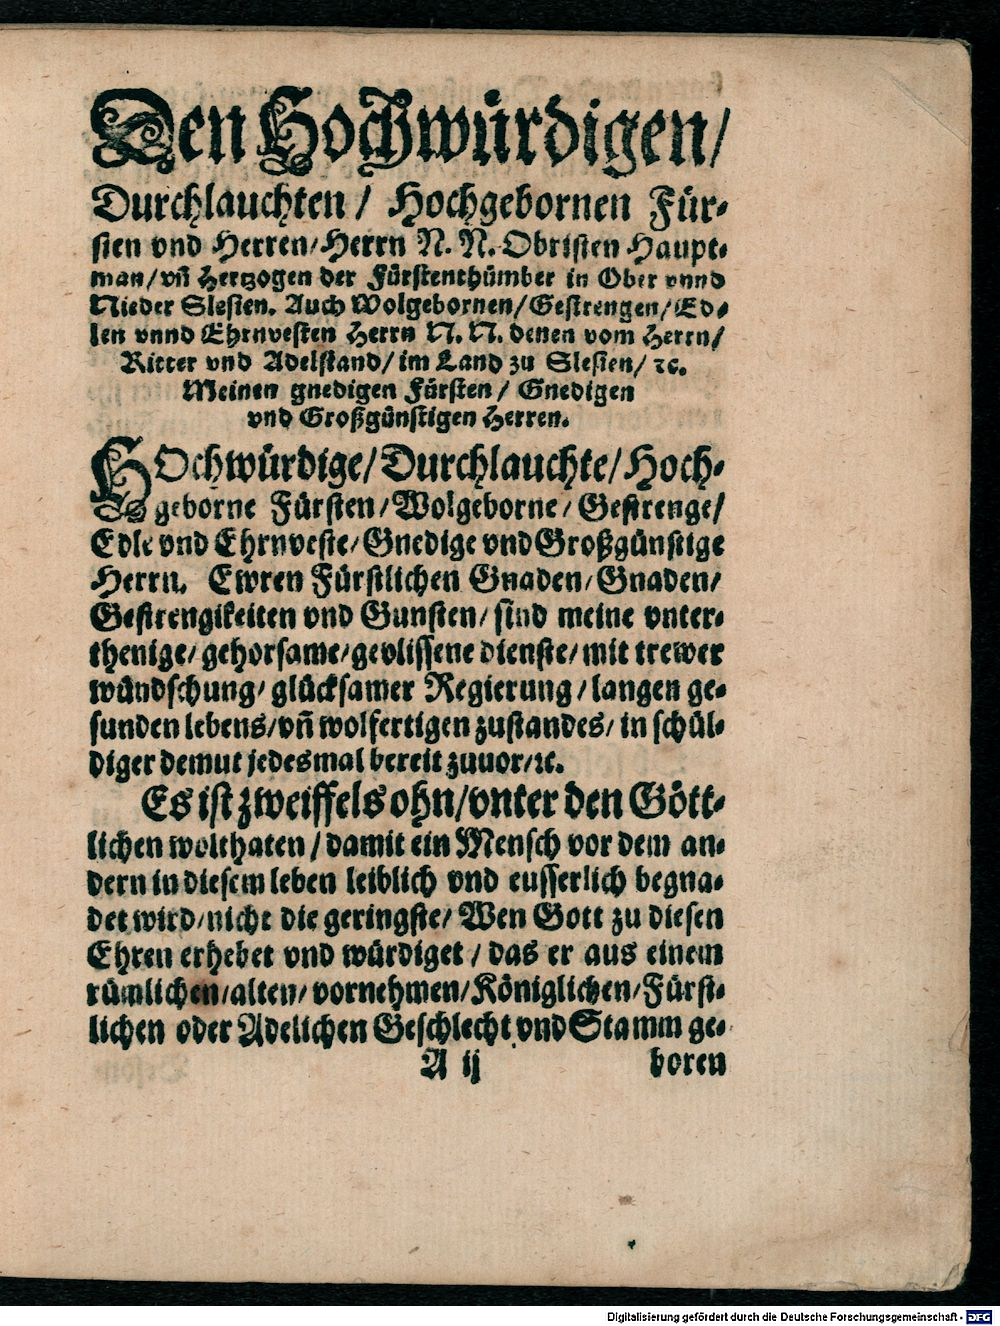 Den Hochwürdigen/
Durchlauchten/ Hochgebornen Für-
sten vnd Herren/Herrn N. N. Obristen Haupt-
man/vñ Hertzogen der Fürstenthümber in Ober vnnd
Nieder Slesien. Auch Wolgebornen/Gestrengen/Ed-
len vnnd Ehrnvesten Herrn N. N. denen vom Herrn/
Ritter vnd Adelstand/im Land zu Slesien/ ꝛc.
Meinen gnedigen Fürsten/ Gnedigen
vnd Großgünstigen Herren.
HOchwürdige/Durchlauchte/Hoch-
geborne Fürsten/Wolgeborne/Gestrenge/
Edle vnd Ehrnveste/Gnedige vnd Großgünstige
Herrn. Ewren Fürstlichen Gnaden/Gnaden/
Gestrengikeiten vnd Gunsten/sind meine vnter-
thenige/gehorsame/gevlissene dienste/mit trewer
wündschung/glücksamer Regierung/langen ge-
sunden lebens/vñ wolfertigen zustandes/in schül-
diger demut jedesmal bereit zuuor/ꝛc.
Es ist zweiffels ohn/vnter den Gött-
lichen wolthaten/damit ein Mensch vor dem an-
dern in diesem leben leiblich vnd eusserlich begna-
det wird/nicht die geringste/Wen Gott zu diesen
Ehren erhebet vnd würdiget/das er aus einem
rümlichen/alten/vornehmen/Königlichen/Fürst-
lichen oder Adelichen Geschlecht vnd Stamm ge-
A ij boren
Digitalisierung gefördert durch die Deutsche Forschungsgemeinschaft - DFG